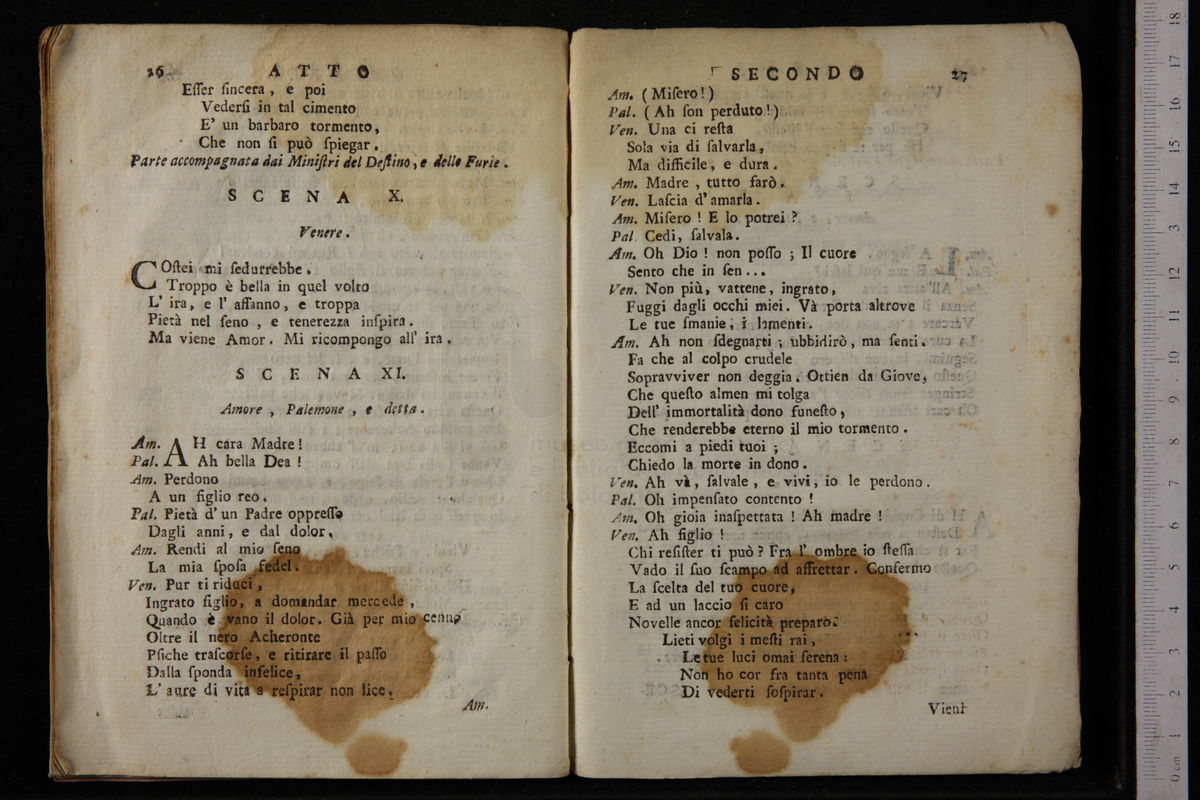 26 ATTO
Esser sincera, e poi
Vedersi in tal cimento
E' un barbaro tormento,
Che non si può spiegar.
Parte accompagnata dai Ministri del Destino, e delle Furie.
SCENA X.
Venere.
COstei mi sedurrebbe.
Troppo è bella in quel volto
L' ira, e l' affanno, e troppa
Pietà nel seno, e tenerezza inspira.
Ma viene Amor. Mi ricompongo all' ira.
SCENA XI.
Amore, Palemone, e detta.
Am. AH cara Madre!
Pal. Ah bella Dea!
Am. Perdono
A un figlio reo.
Pal. Pietà d'un Padre oppresso
Dagli anni, e dal dolor,
Am. Rendi al mio seno
La mia sposa fedel.
Ven. Pur ti riduci,
Ingrato figlio, a domandar mercede,
Quando è vano il dolor. Già per mio cenno
Oltre il nero Acheronte
Psiche trascorse, e ritirare il passo
Dalla sponda infelice,
L' aure di vita a respirar non lice.
Am.
SECONDO 27
Am. (Misero!)
Pal. (Ah son perduto!)
Ven. Una ci resta
Sola via di salvarla,
Ma difficile, e dura.
Am. Madre, tutto farò.
Ven. Lascia d'amarla.
Am. Misero! E lo potrei?
Pal. Cedi, salvala.
Am. Oh Dio! non posso; Il cuore
Sento che in sen...
Ven. Non più, vattene, ingrato,
Fuggi dagli occhi miei. Và porta altrove
Le tue smanie, i lamenti.
Am. Ah non sdegnarti; ubbidirò, ma senti.
Fa che al colpo crudele
Sopravviver non deggia. Ottien da Giove,
Che questo almen mi tolga
Dell' immortalità dono funesto,
Che renderebbe eterno il mio tormento.
Eccomi a piedi tuoi;
Chiedo la morte in dono.
Ven. Ah và, salvale, e vivi, io le perdono.
Pal. Oh impensato contento!
Am. Oh gioia inaspettata! Ah madre!
Ven. Ah figlio!
Chi resister ti può? Fra l' ombre io stessa
Vado il suo scampo ad affrettar. Confermo
La scelta del tuo cuore,
E ad un laccio sì caro
Novelle ancor felicità preparo.
Lieti volgi i mesti rai,
Le tue luci omai serena:
Non ho cor fra tanta pena
Di vederti sospirar.
Vieni